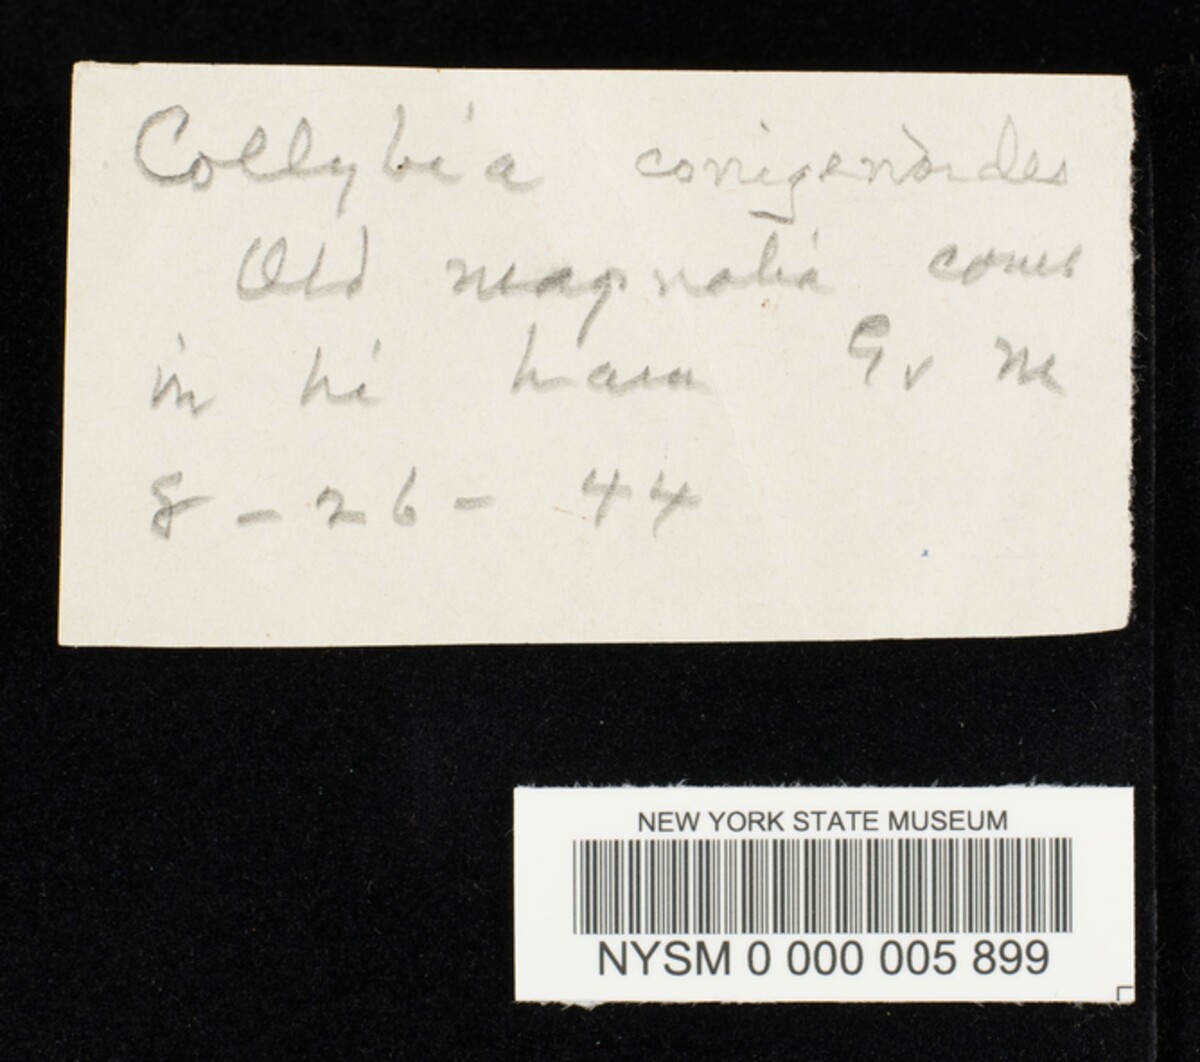 Collybia conigenoides
Old magnolia cones
in
8-26-44
NEW YORK STATE MUSEUM
NYSM 0 000 005 899